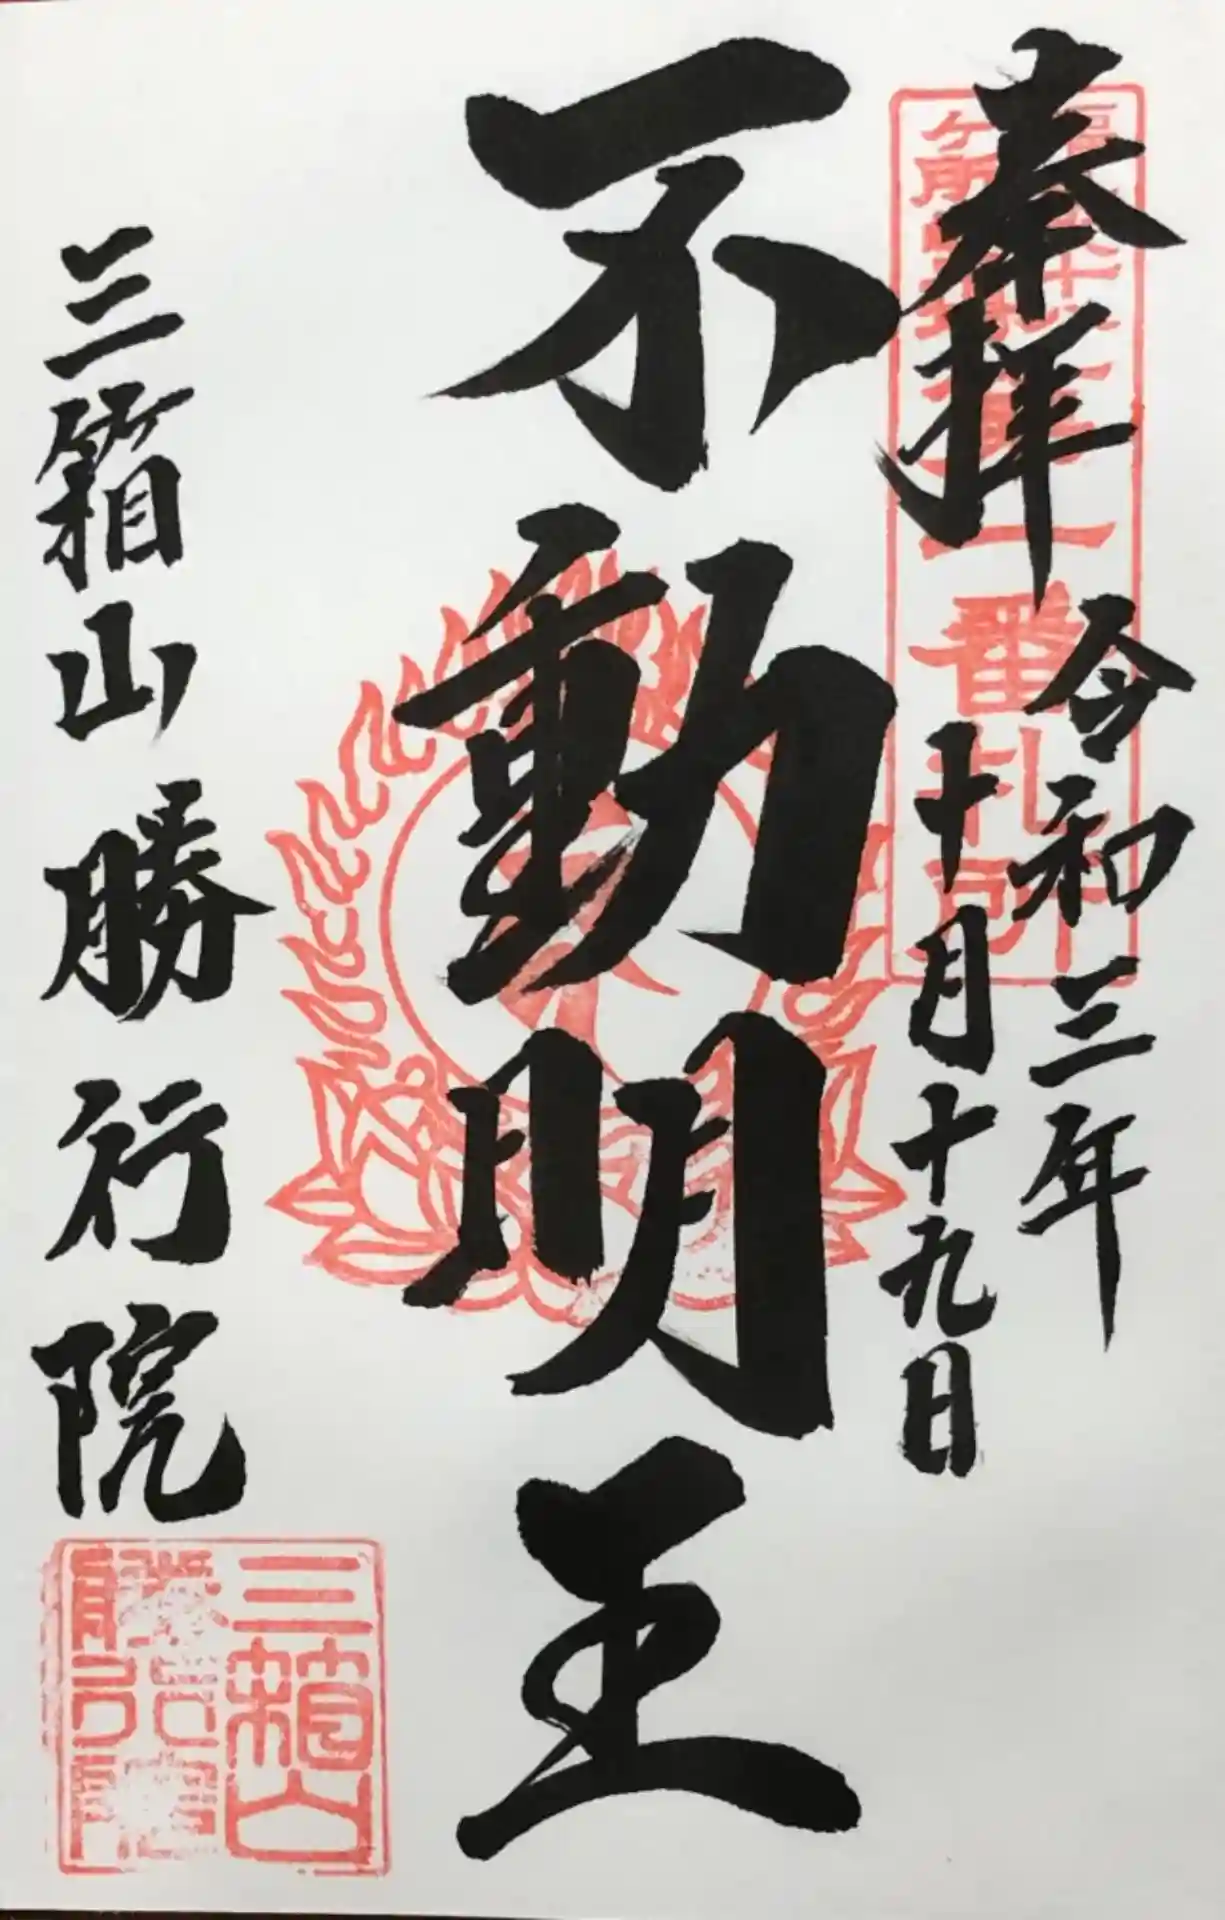 奉拝
令和三年
十月十九日
不動明王
三箱山勝行院
一番札所
三箱山
勝行院